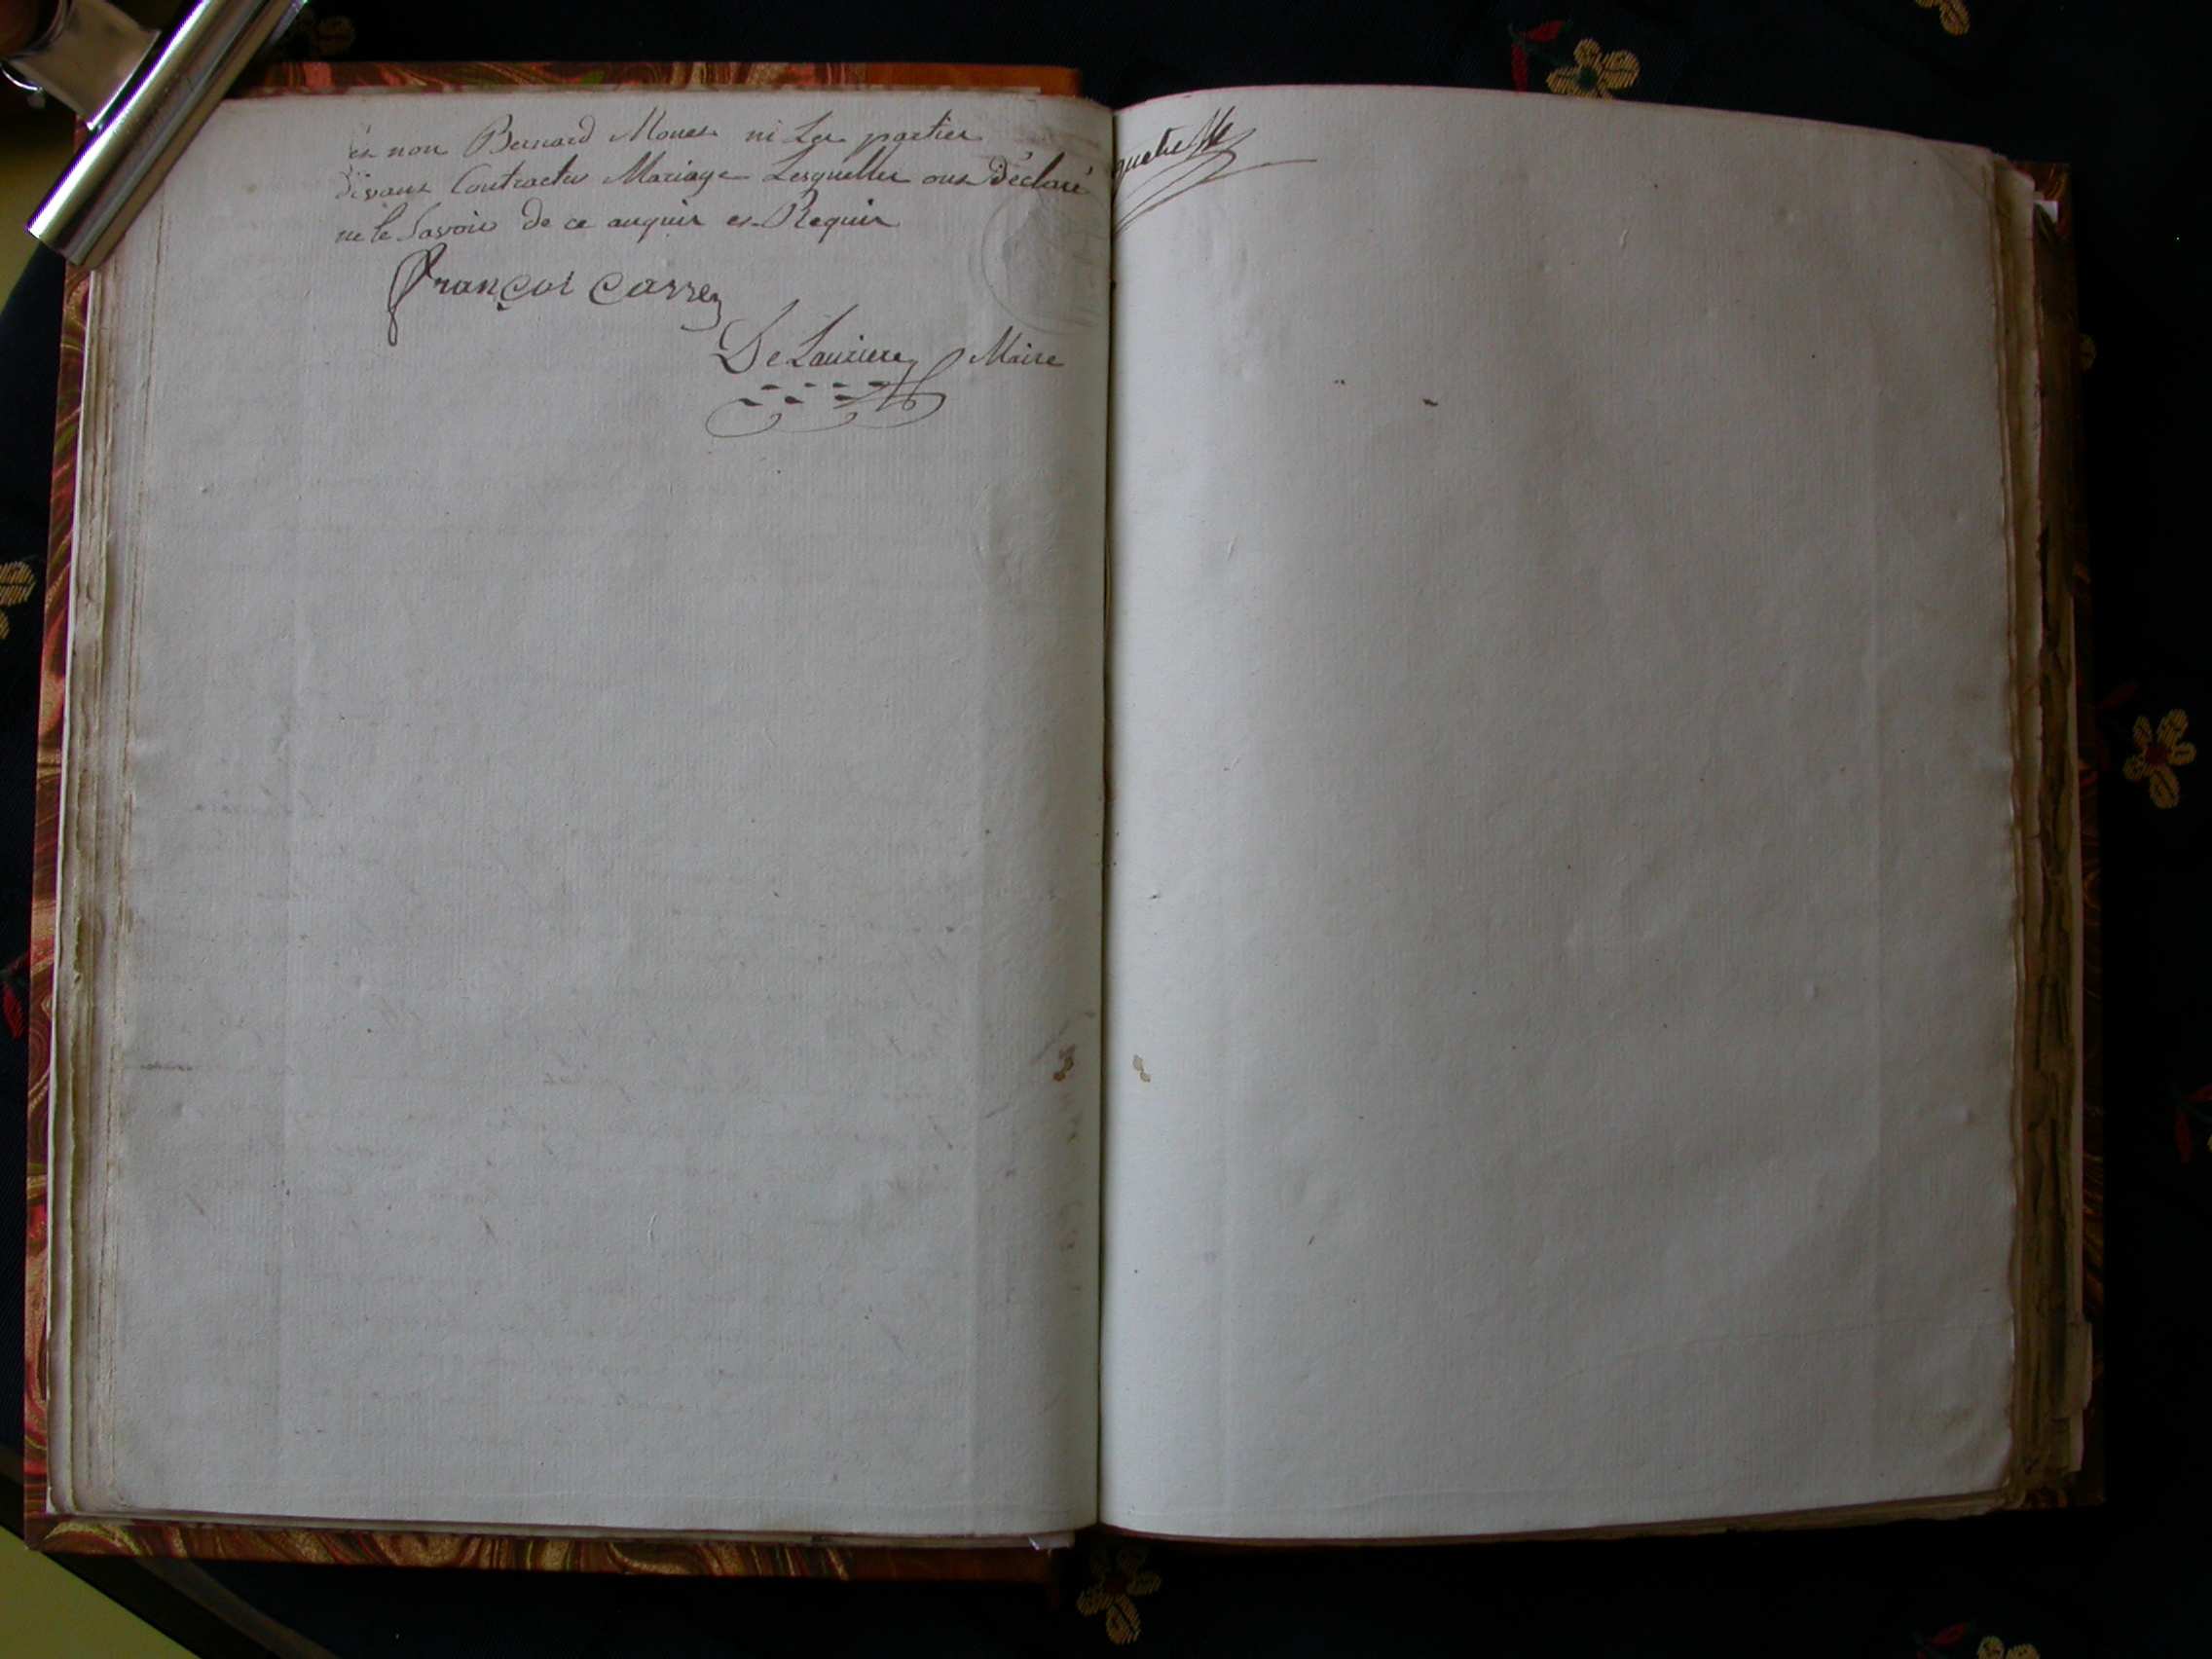 et non Bernard Moues ni Les parties
divans Contracter Mariage Lesquelles ont Déclaré
ne le Savoir de ce auquis et Requis
françoi carrez
De Lauriere Maire